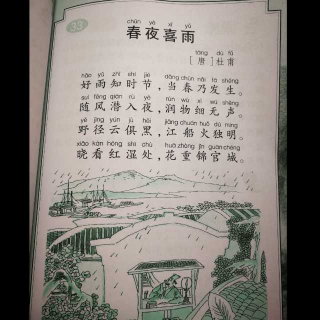 33
chūn yè xǐ yǔ
春夜喜雨
táng dù fǔ
[唐]杜甫
hǎo yǔ zhī shí jié dāng chūn nǎi fā shēng
好雨知时节，当春乃发生。
suí fēng qián rù yè rùn wù xì wú shēng
随风潜入夜，润物细无声。
yě jìng yún jù hēi jiāng chuán huǒ dú míng
野径云俱黑，江船火独明。
xiǎo kàn hóng shī chù huā zhòng jǐn guān chéng
晓看红湿处，花重锦官城。